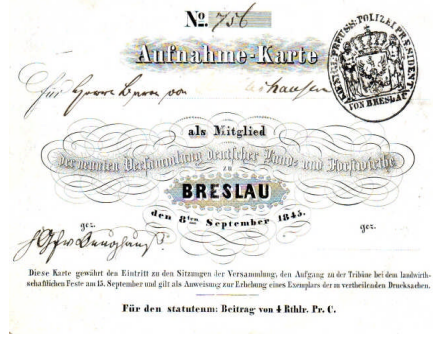 No. 756
Aufnahme-Karte
KÖNIGL. PREUSS. POLIZEI PRÄSIDENT.
VON BRESLAU
Für Herrn Baron von hausen
als Mitglied
der neunten Versammlung deutscher Land- und Forstwirthe
zu
BRESLAU
den 8ten September 1845.
gez. gez.
Diese Karte gewährt den Eintritt zu den Sitzungen der Versammlung, den Aufgang zu der Tribüne bei dem landwirth-
schaftlichen Feste am 13. September und gilt als Anweisung zur Erhebung eines Exemplars der zu vertheilenden Drucksachen.
Für den statutenm: Beitrag von 4 Rthlr. Pr. C.